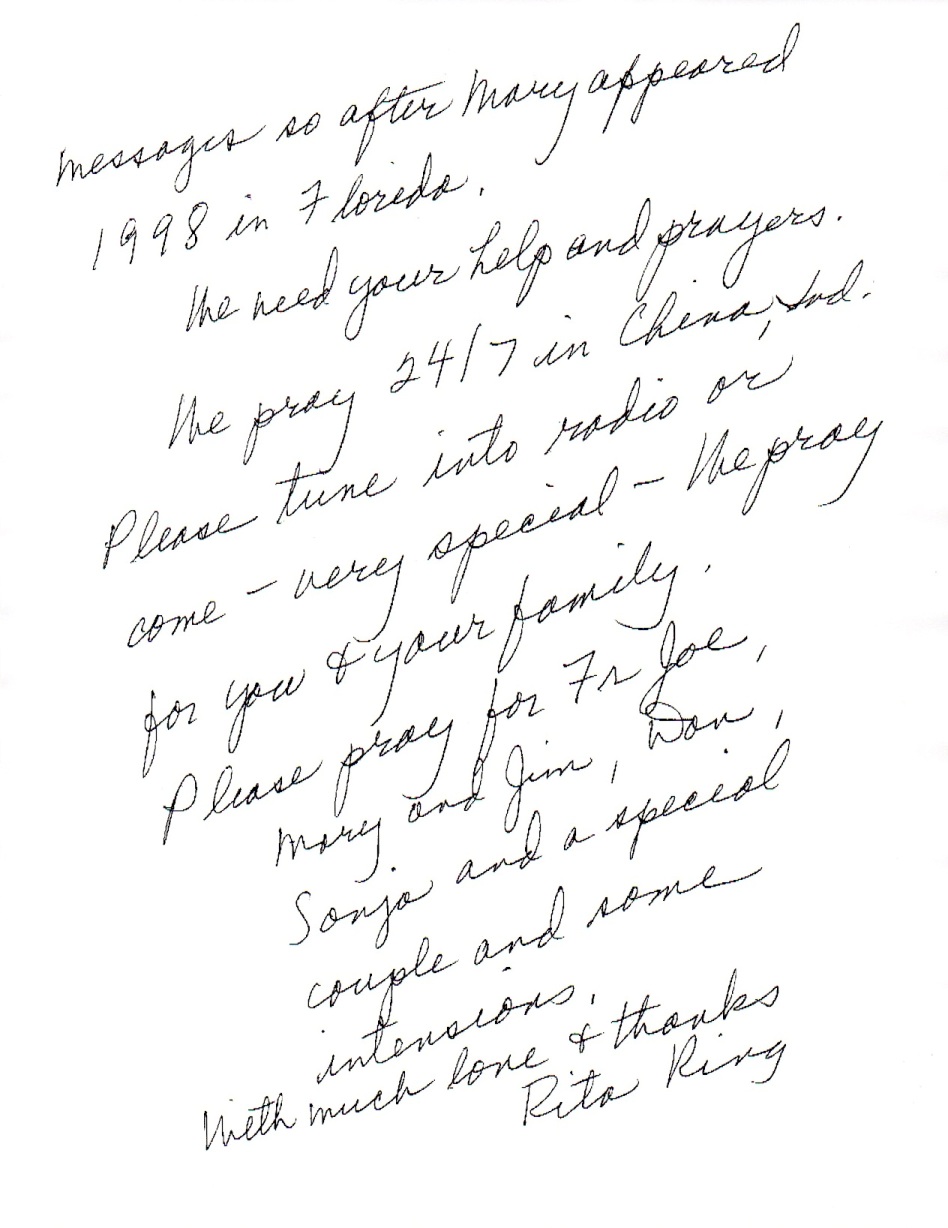 messages so after Mary appeared
1998 in Florida.
We need your help and prayers.
We pray 24/7 in China, Ind.
Please tune into radio or
come – very special – We pray
for you & your family.
Please pray for Fr Joe,
Mary and Jim, Don,
Sonja and a special
couple and some
intensions.
With much love & thanks
Rita Ring